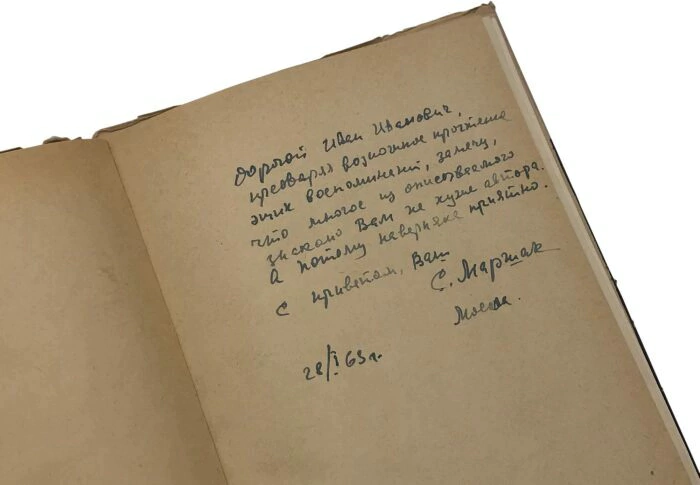 Дорогой Иван Иванович,
предваряя возможное прочтение
этих воспоминаний, замечу,
что многое из описываемого
знакомо Вам не хуже автора.
А потому наверняка приятно.
С приветом, Ваш
С. Маршак
Москва.
28/I 63 г.